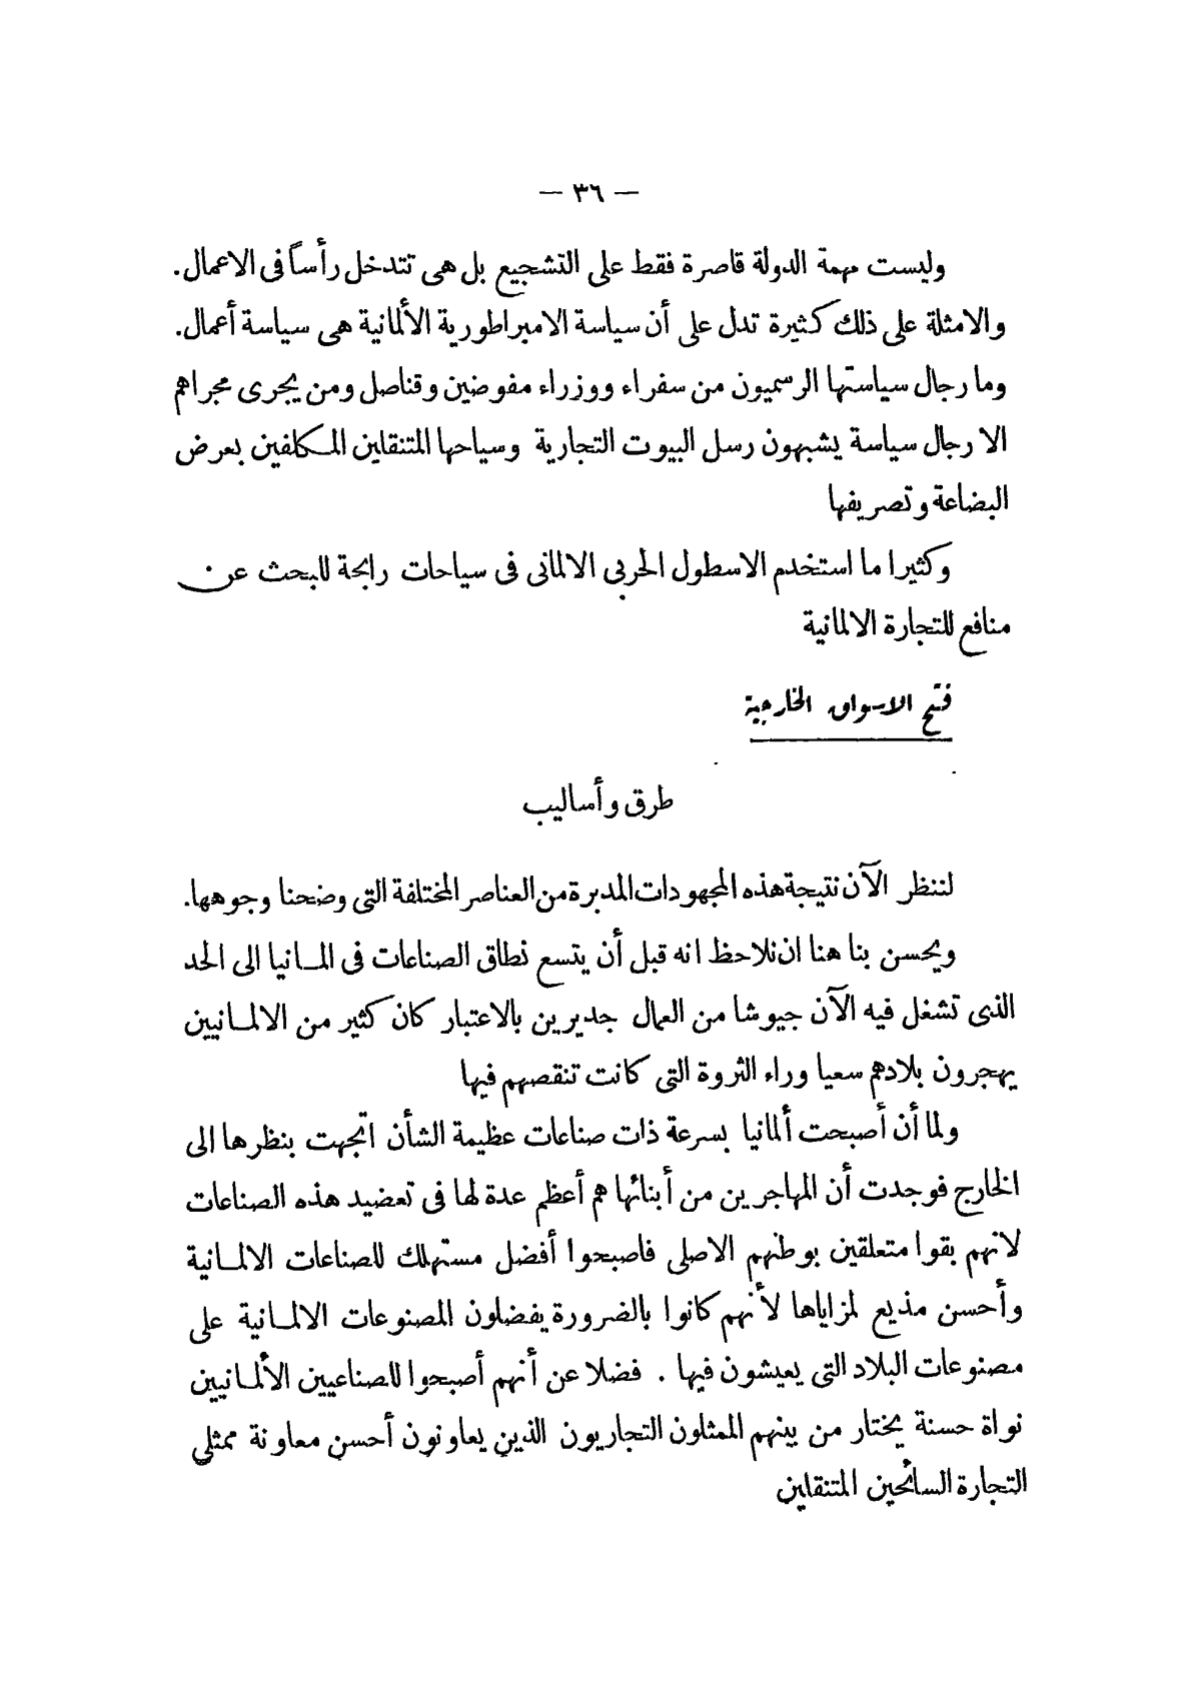 — ٣٦ —
وليست مهمة الدولة قاصرة فقط على التشجيع بل هى تتدخل رأساً فى الاعمال.
والامثلة على ذلك كثيرة تدل على أن سياسة الامبراطورية الألمانية هى سياسة أعمال.
وما رجال سياستها الرسميون من سفراء ووزراء مفوضين وقناصل ومن يجرى مجراهم
الا رجال سياسة يشبهون رسل البيوت التجارية وسياحها المتنقلين المكلفين بعرض
البضاعة وتصريفها
وكثيرا ما استخدم الاسطول الحربى الالمانى فى سياحات رابحة للبحث عن
منافع للتجارة الالمانية
فتح الاسواق الخارجية
طرق وأساليب
لننظر الآن نتيجة هذه المجهودات المدبرة من العناصر المختلفة التى وضحنا وجوهها.
ويحسن بنا هنا ان نلاحظ انه قبل أن يتسع نطاق الصناعات فى المـانيا الى الحد
الذى تشغل فيه الآن جيوشا من العمال جديرين بالاعتبار كان كثير من الالمـانيين
يهجرون بلادهم سعيا وراء الثروة التى كانت تنقصهم فيها
ولما أن أصبحت ألمانيا بسرعة ذات صناعات عظيمة الشأن اتجهت بنظرها الى
الخارج فوجدت أن المهاجرين من أبنائها هم أعظم عدة لها فى تعضيد هذه الصناعات
لانهم بقوا متعلقين بوطنهم الاصلى فاصبحوا أفضل مستهلك للصناعات الالمـانية
وأحسن مذيع لمزاياها لأنهم كانوا بالضرورة يفضلون المصنوعات الالمـانية على
مصنوعات البلاد التى يعيشون فيها . فضلا عن أنهم أصبحوا للصناعيين الألمـانيين
نواة حسنة يختار من بينهم الممثلون التجاريون الذين يعاونون أحسن معاونة ممثلى
التجارة السائحين المتنقلين